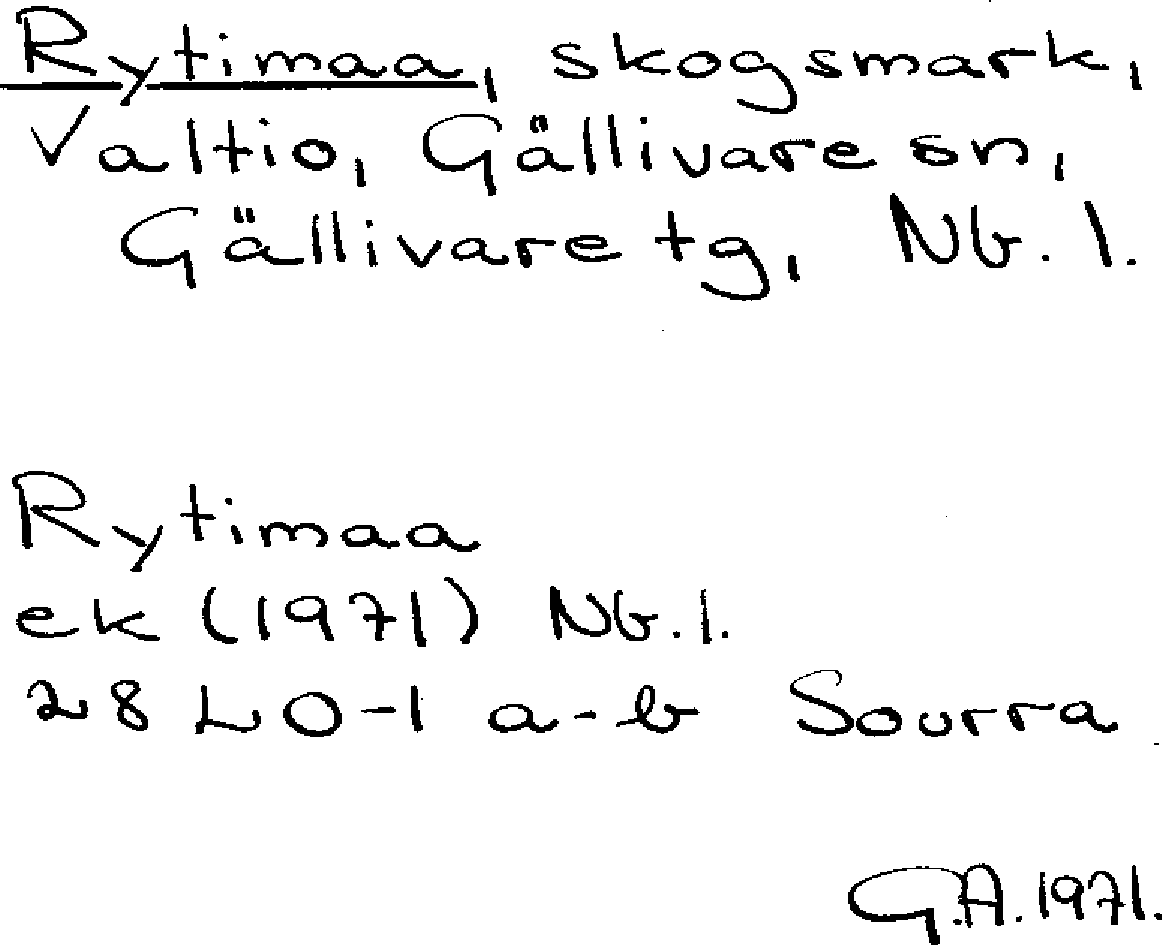 Rytimaa, skogsmark,
Valtio, Gällivare sn,
Gällivare tg, Nb. l.
Rytimaa
ek (1971) Nb. l.
28 L 0-1 a-b Sourra
G.A. 1971.